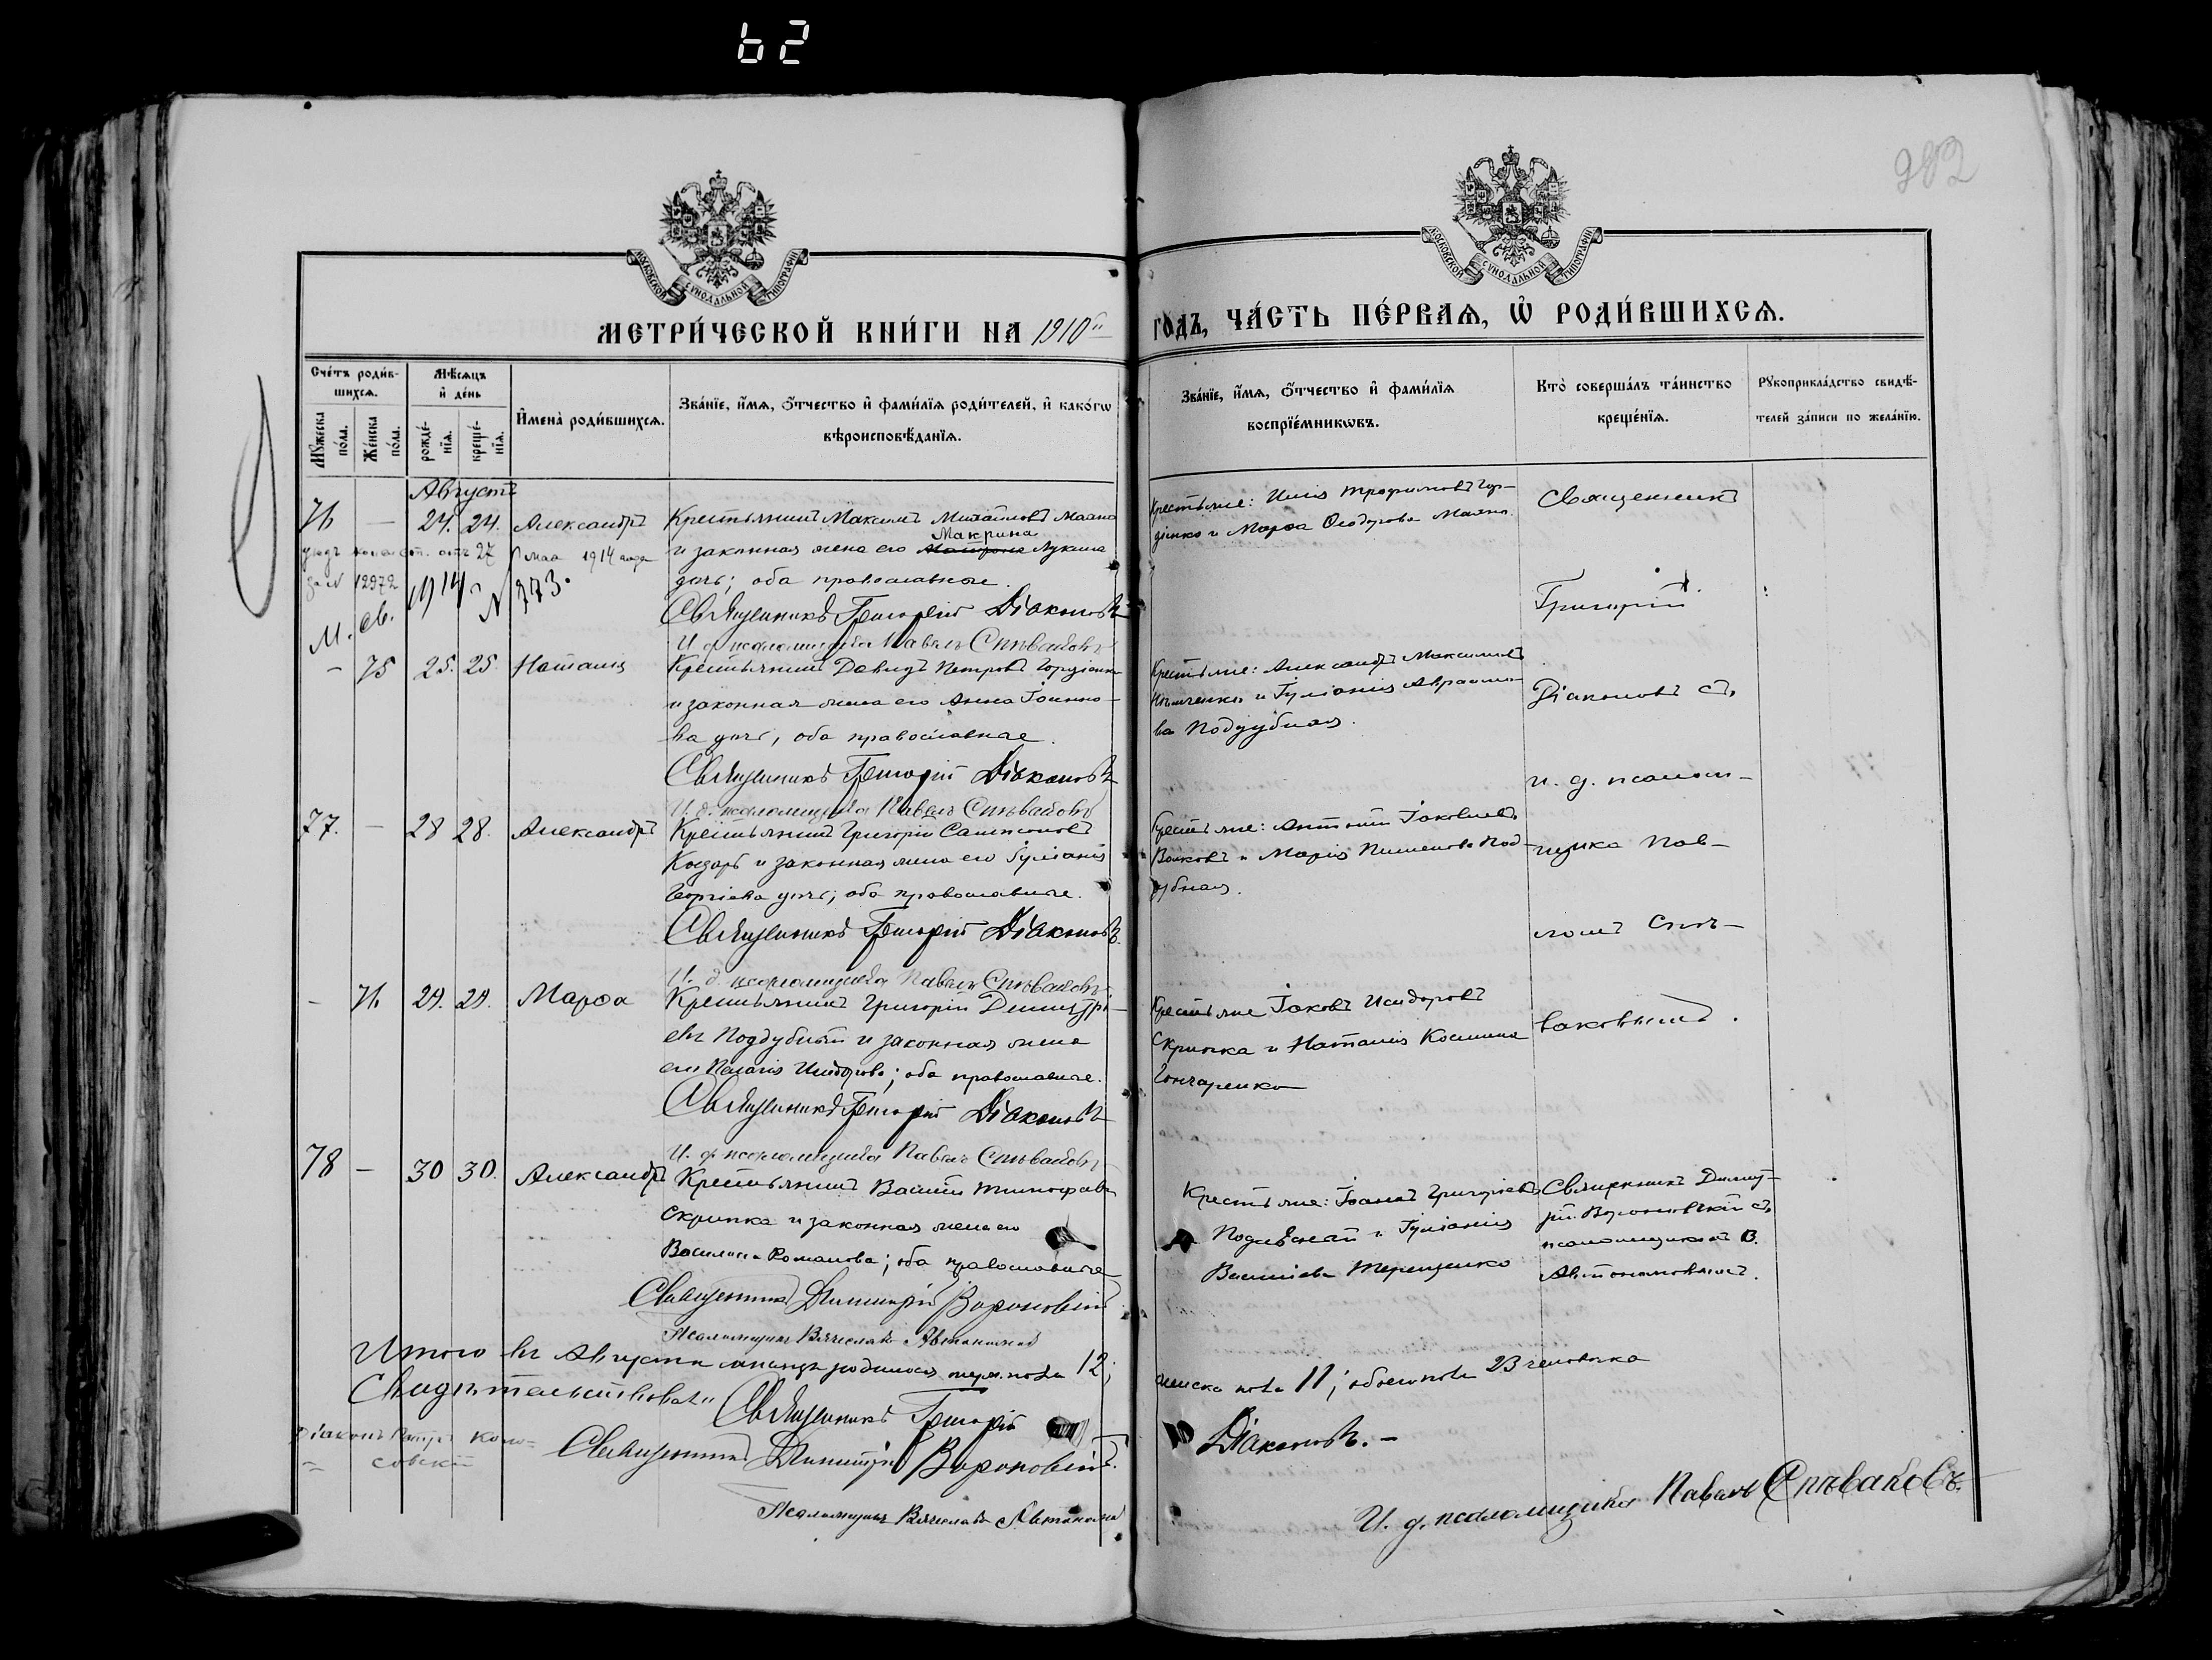 62
202
МОСКОВСКОЙ СѴНОДАЛЬНОЙ ТИПОГРАФІИ
МОСКОВСКОЙ СѴНОДАЛЬНОЙ ТИПОГРАФІИ
МЕТРИ́ЧЕСКОЙ КНИ́ГИ НА 1910й
ГОДЪ, ЧА́СТЬ ПЕ́РВАѦ, Ѽ РОДИ́ВШИХСѦ.
Сче́тъ роди́в-
шихсѧ.
Мꙋ́жеска по́ла.
Же́нска по́ла.
Мѣ́сѧцъ
и҆ де́нь
рожде́-
нїѧ.
креще́-
нїѧ.
И҆мена̀ роди́вшихсѧ.
Зва́нїе, и҆́мѧ, ѻ҆́тчество и҆ фами́лїѧ роди́телей, и҆ како́гѡ
вѣроисповѣ́данїѧ.
Зва́нїе, и҆́мѧ, ѻ҆́тчество и҆ фами́лїѧ
воспрїе́мникѡвъ.
Кто̀ соверша́лъ та́инство
креще́нїѧ.
Рꙋкоприкла́дство свидѣ́-
телей за́писи по жела́нїю.
Августъ
76 — 24. 24. Александръ
Крестьянинъ Максимъ Михайловъ
Макрина
и законная жена его Лукина
дочь; оба православные.
Священникъ Григорій Діаконовъ
И. д. псаломщика Павелъ Спѣваковъ
27 мая 1914 года
за № 12972 1914 г. № 773.
М. св.
Крестьяне: Трофимовъ Гор-
діенко и Марѳа Ѳеодорова
Священникъ
Григорій
— 75 25. 25. Наталія
Крестьянинъ Давидъ Петровъ Гордіенко
и законная жена его Анна Іоанно-
ва дочь, оба православные.
Священникъ Григорій Діаконовъ
И. д. псаломщика Павелъ Спѣваковъ
Крестьяне: Александръ Максимовъ
и Іуліанія Авраамо-
ва Поддубная.
Діаконовъ съ
и. д. псалом-
77. — 28 28. Александръ
Крестьянинъ Григорій Сампсоновъ
Козарь и законная жена его Іуліанія
Георгіева дочь; оба православные.
Священникъ Григорій Діаконовъ.
И. д. псаломщика Павелъ Спѣваковъ
Крестьяне: Антоній Іаковлевъ
Волковъ и Марія Пименова Под-
дубная.
щика Пав-
ломъ Спѣ-
— 76 29. 29. Марѳа
Крестьянинъ Григорій Димитрі-
евъ Поддубный и законная жена
его Пелагія Исидорова; оба православные.
Священникъ Григорій Діаконовъ
И. д. псаломщика Павелъ Спѣваковъ
Крестьяне Іаковъ Исидоровъ
Скрипка и Наталія Космина
Гончаренко
ваковымъ.
78 — 30 30. Александръ
Крестьянинъ Василій Тимофеевъ
Скрипка и законная жена его
Василиса Романова; оба православные
Священникъ Димитрій Вороновскій
Псаломщикъ Вячеславъ Автономовъ
Крестьяне: Іоаннъ Григорьевъ
и Іуліанія
Васильева Терещенко
Священникъ Димит-
рій Вороновскій съ
псаломщикомъ В.
Автономовымъ.
Итого въ Августѣ мѣсяцѣ родилось муж. пола 12;
женска пола 11; обоего пола 23 человѣка
Свидѣтельствовали: Священникъ Григорій
Діаконовъ. —
Діаконъ Петръ
Священникъ Димитрій Вороновскій.
Псаломщикъ Вячеславъ Автономовъ
И. д. псаломщика Павелъ Спѣваковъ.